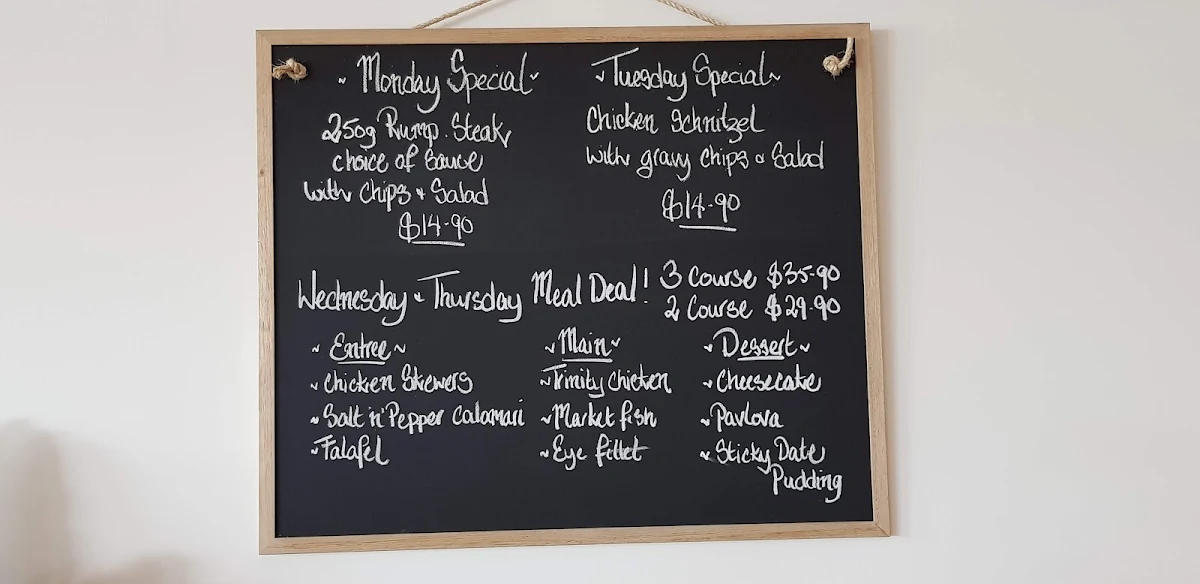 ~ Monday Special ~
250g Rump Steak
choice of Sauce
with Chips & Salad
$14-90
~ Tuesday Special ~
Chicken Schnitzel
with gravy chips & Salad
$14-90
Wednesday & Thursday Meal Deal!
3 Course $35-90
2 Course $29.90
~ Entree ~
~ Chicken Skewers
~ Salt 'n' Pepper Calamari
~ Falafel
~ Main ~
~ Trinity Chicken
~ Market fish
~ Eye fillet
~ Dessert ~
~ Cheesecake
~ Pavlova
~ Sticky Date
Pudding